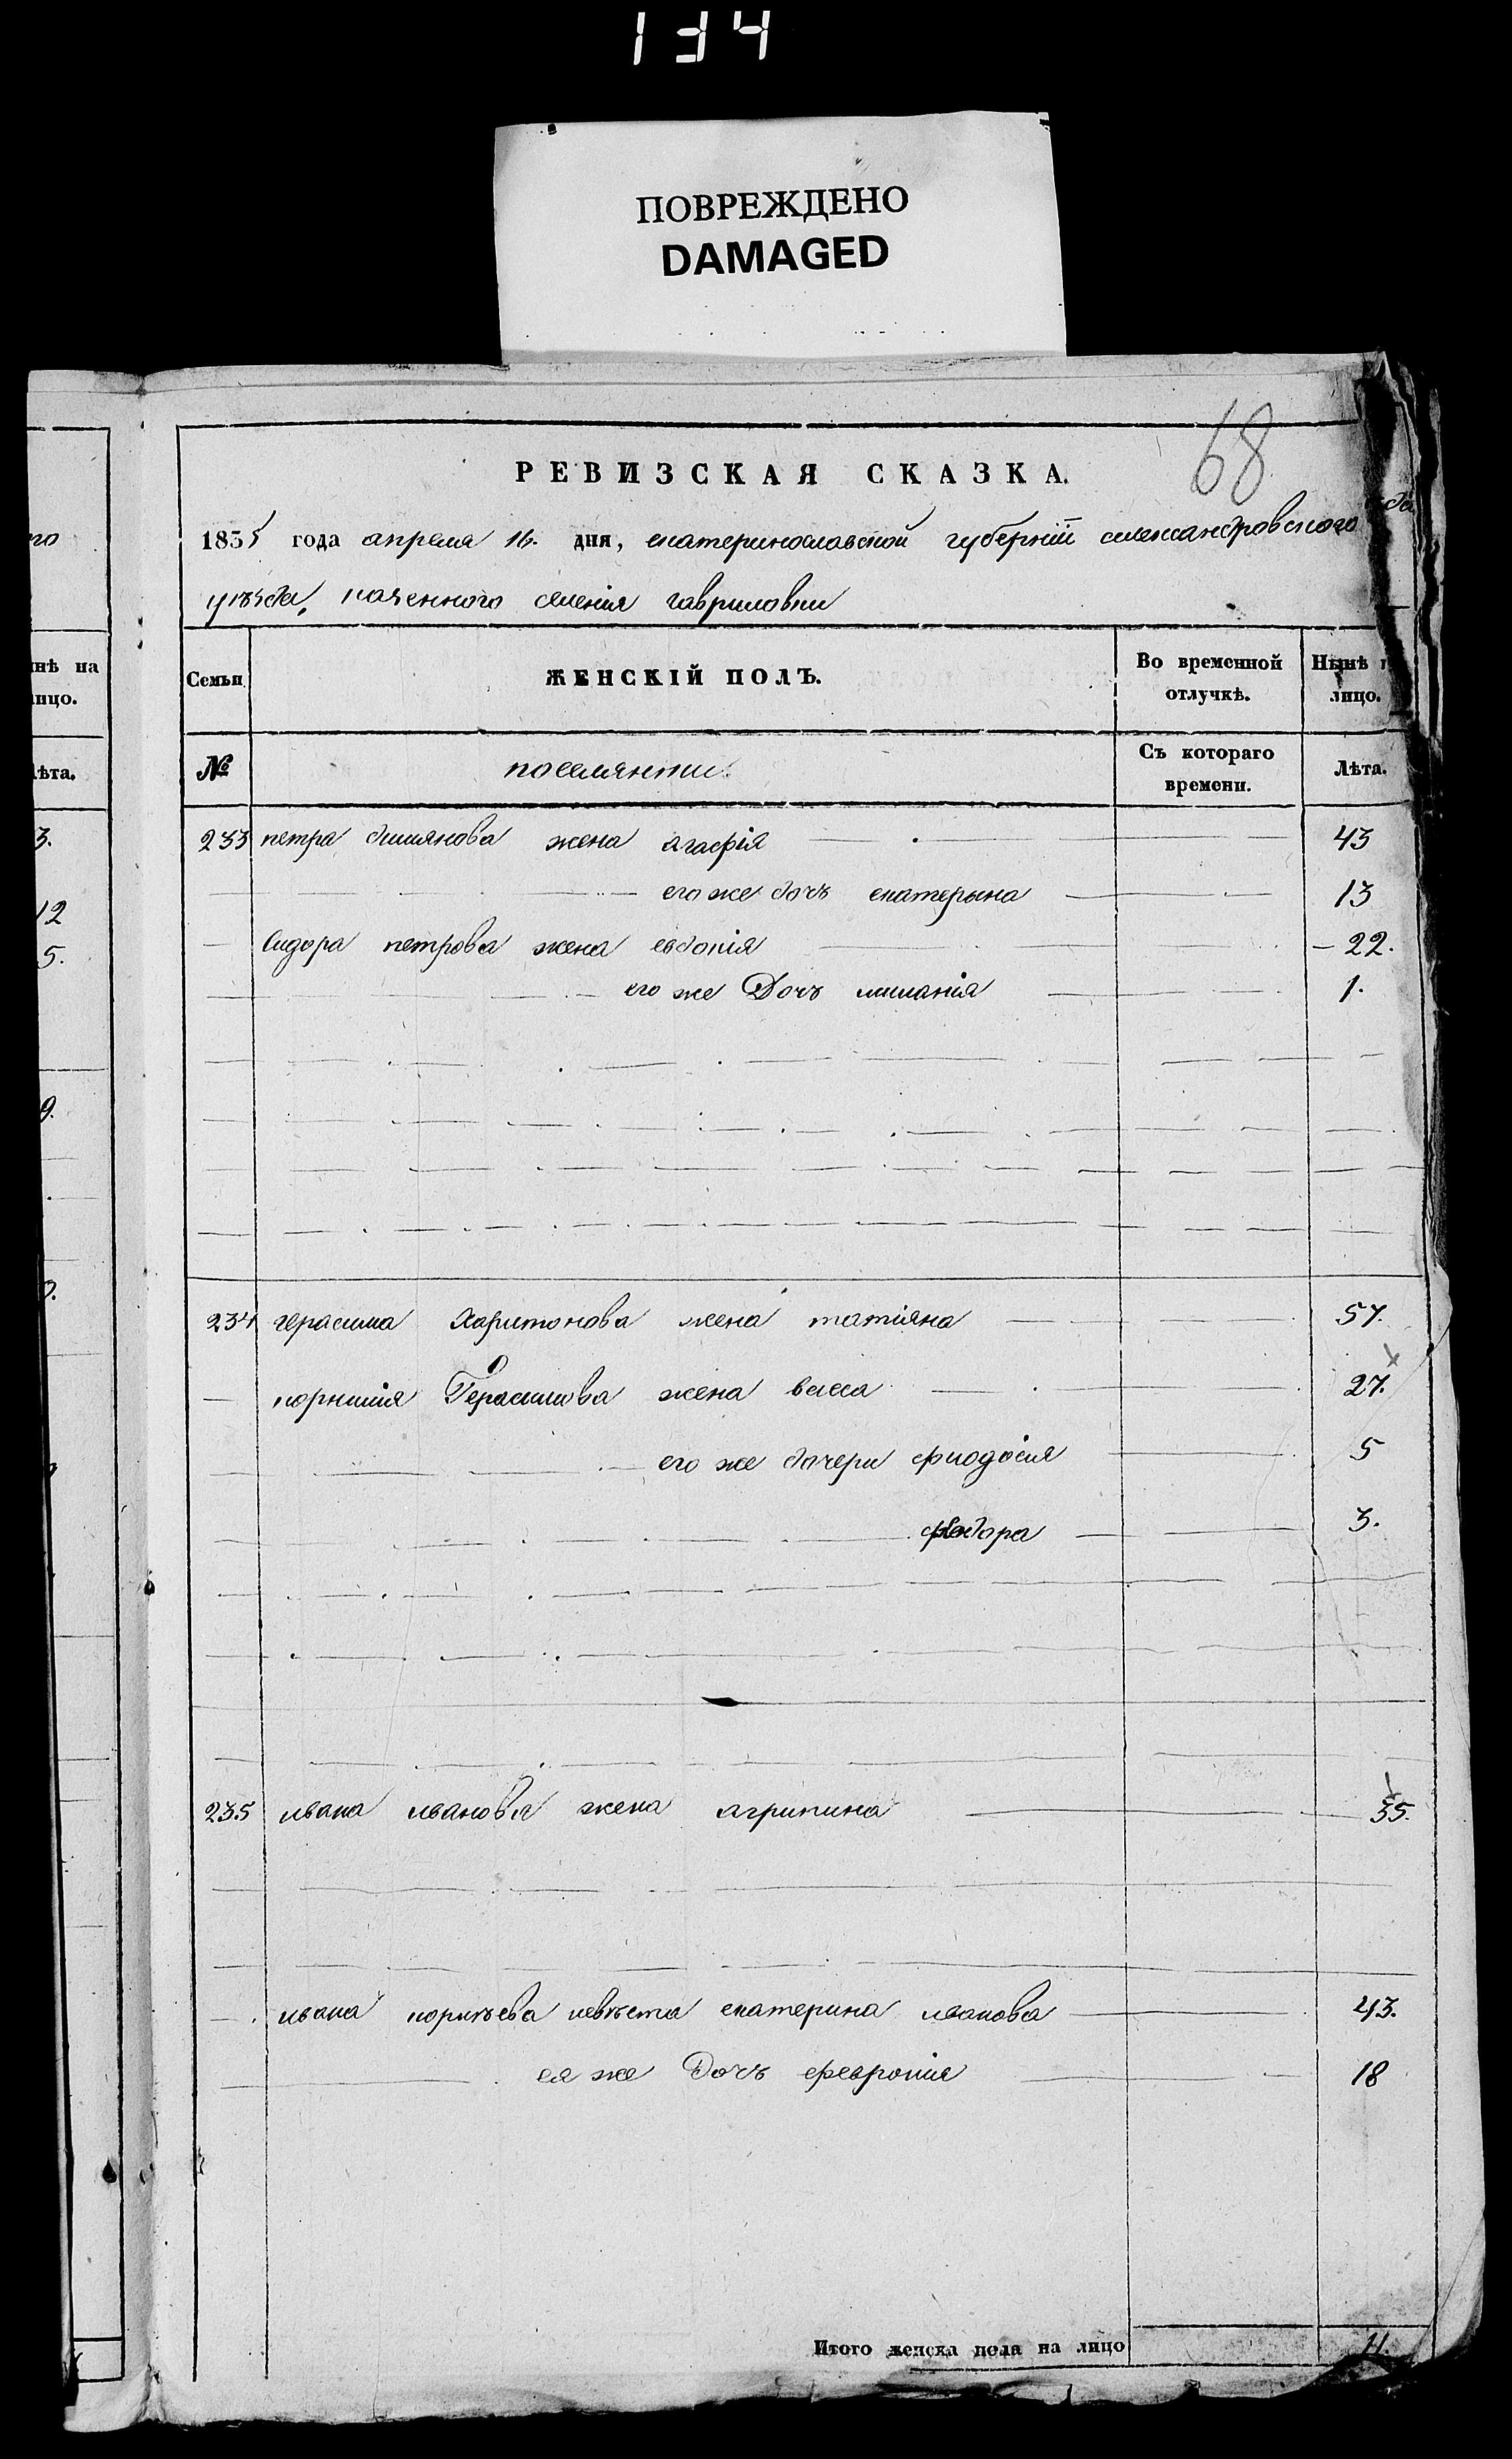 134
ПОВРЕЖДЕНО
DAMAGED
68
РЕВИЗСКАЯ СКАЗКА.
1835 года апреля 16. дня, екатеринославской губернїи александровского
уѣзда, казенного селенія гавриловки
Семьи ЖЕНСКІЙ ПОЛЪ. Во временной отлучкѣ. Нынѣ лицо.
№ поселянки. Съ котораго времени. Лѣта.
233 петра жена агафія 43
его же дочь екатерына 13
Сидора петрова жена евдокія 22.
его же Дочь миланія 1.
234 герасима Харитонова жена татіяна 57.
корнилія Герасимова жена васса 27.
его же дочери фиодосія 5
3.
235 ивана иванова жена агрипина 35.
ивана невѣста екатерина иванова 43.
ея же Дочь февронія 18
Итого женска пола на лицо 11.